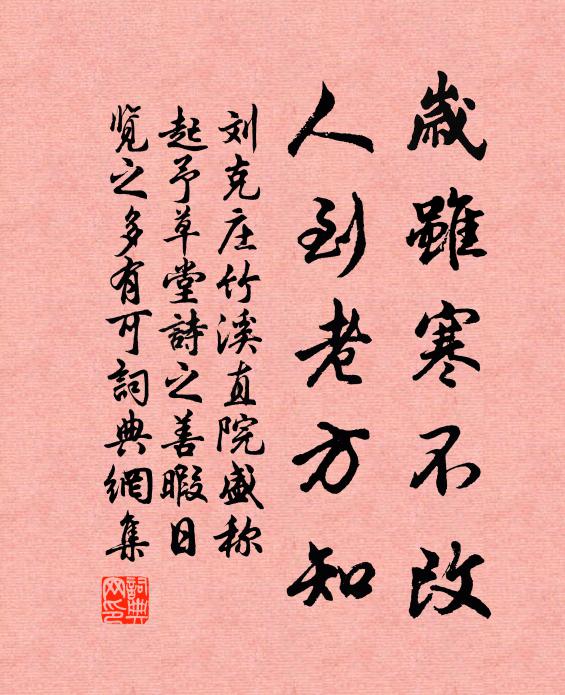 歲雖寒不改
人到老方知
刘克庄竹溪直院盛称
起予草堂詩之善暇日
覽之多有可詞典網集
詞典
网印